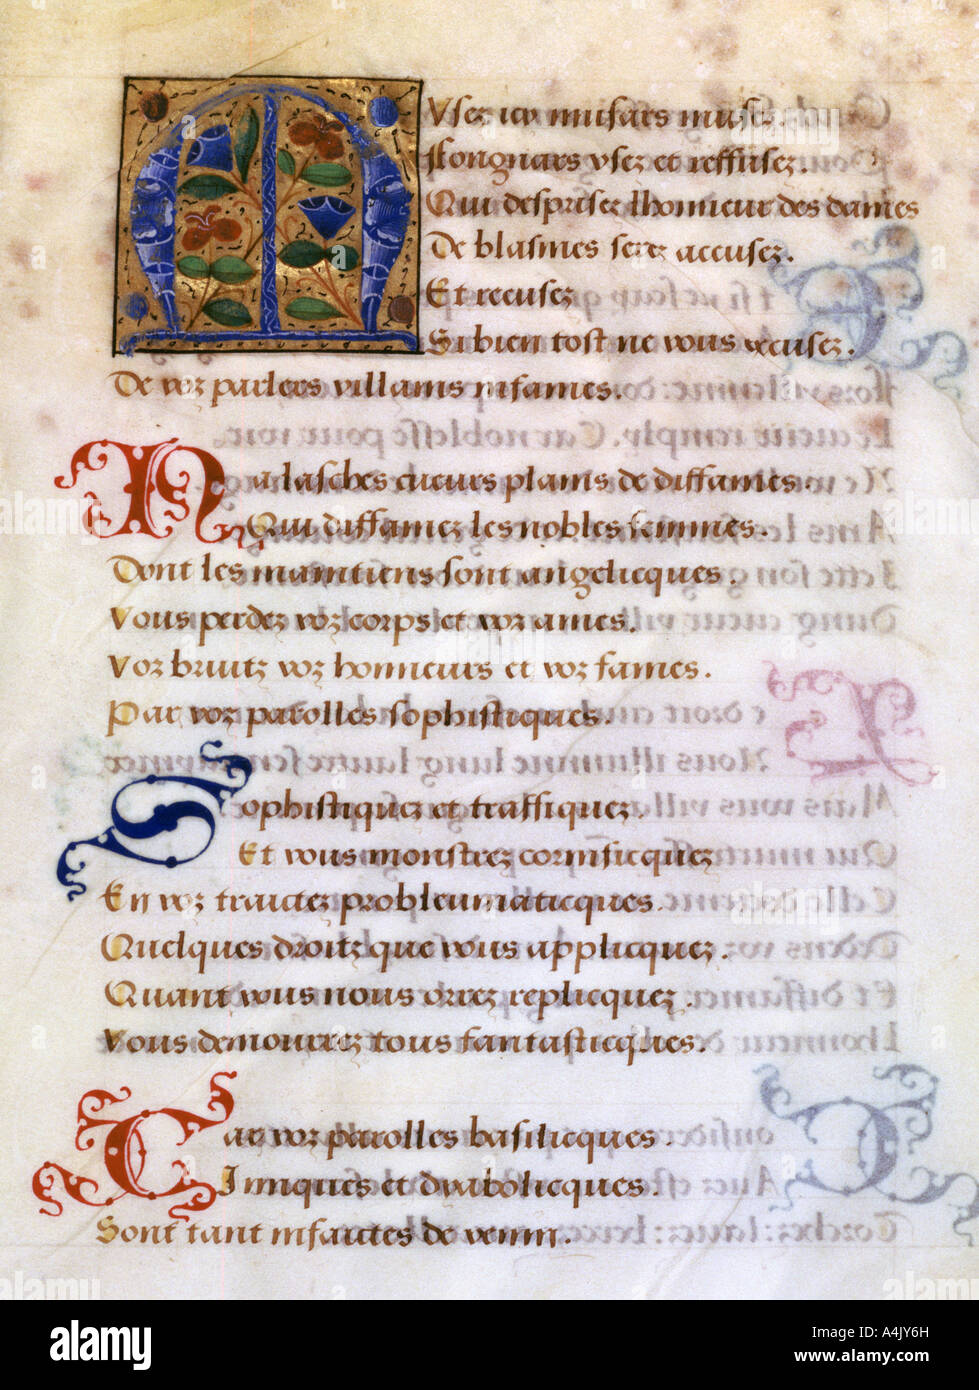 Musez icy musars musez.
Flongnars usez et reffusez.
Qui desprisez lhonneur des dames
De blasmes serez accusez.
Et recusez
Si bien tost ne vous excusez.
De voz parlers villains infames.
Ha lasches cueurs plains de diffames.
Qui diffamez les nobles femmes.
Dont les maintiens sont angelicques.
Vous perdez voz corps et voz ames.
Voz bruitz voz honneurs et voz fames.
Par voz parolles sophistiques.
Sophistiquez et traffiquez.
Et vous monstrez cornificquez
En voz traictez probleumaticques.
Quelques droitz que vous applicquez.
Quant vous nous orrez replicquez.
Vous demourrez tous fantasticques.
Car voz parolles basilicques.
Iniques et dyabolicques.
Sont tant infaictes de venin.
alamy
Image ID: A4JY6H
www.alamy.com